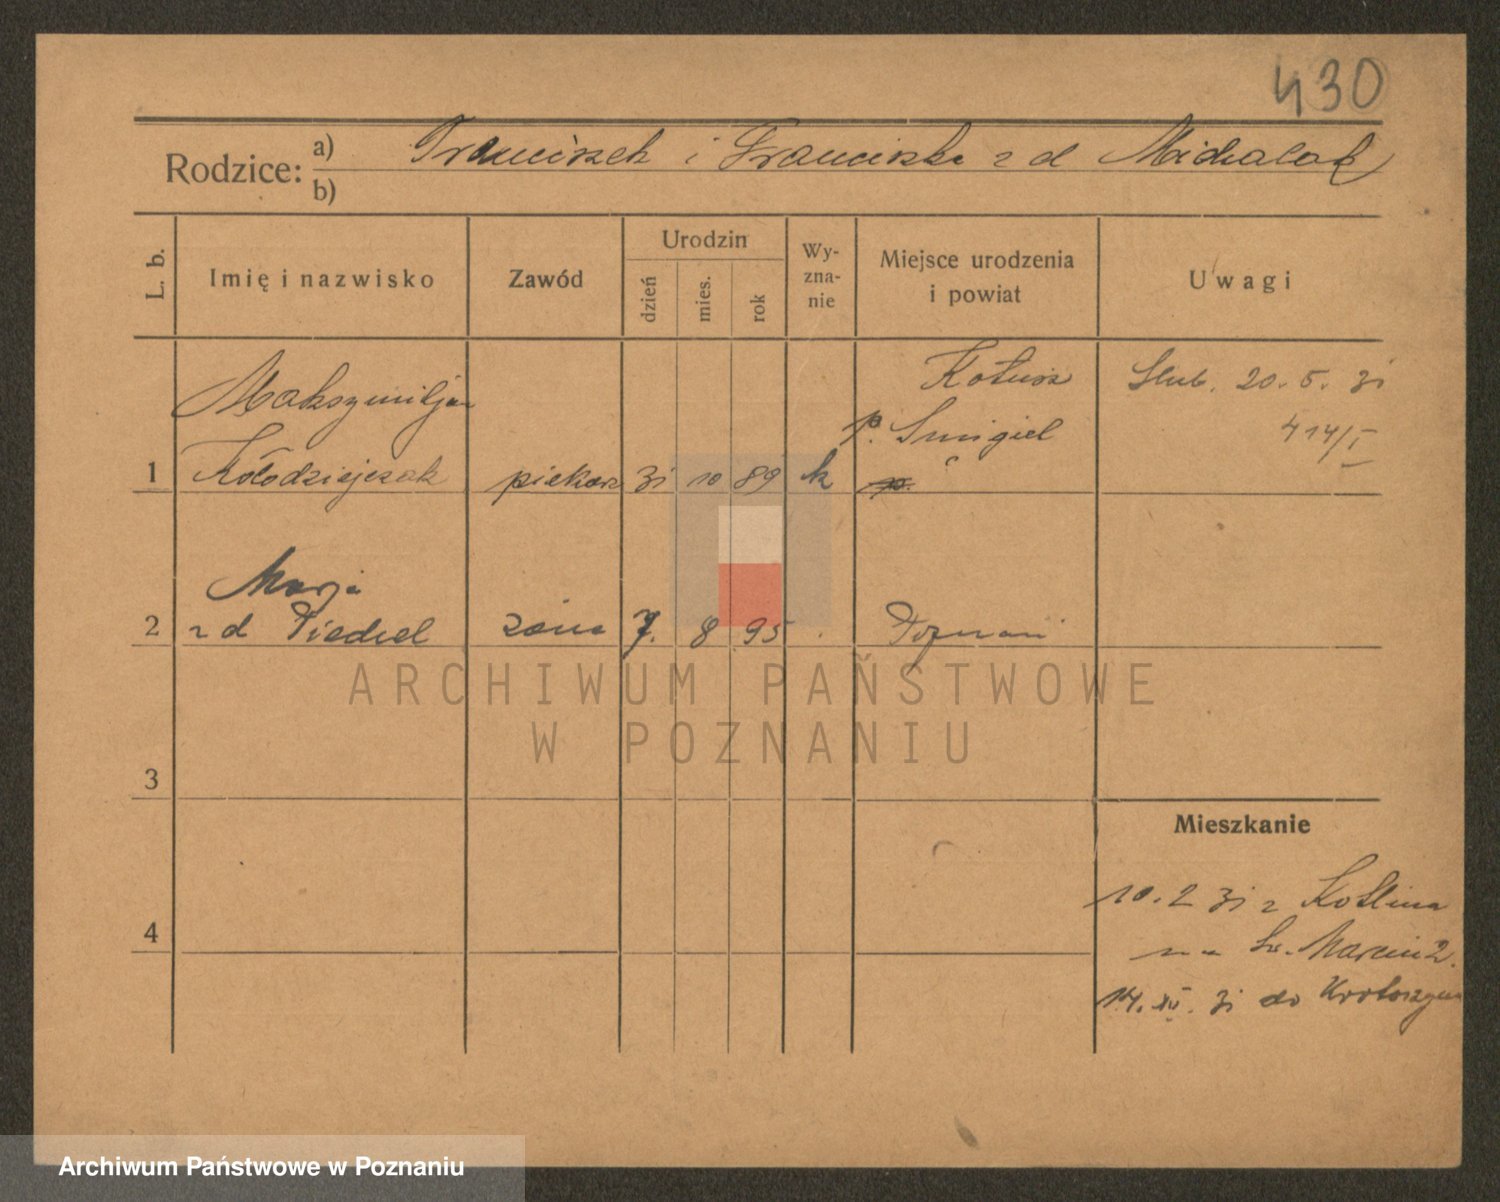 430
Rodzice: a) Franciszek i Franciszka z d Michalak
b)
L. b. Imię i nazwisko Zawód Urodzin dzień mies. rok Wy-zna-nie Miejsce urodzenia i powiat Uwagi
Maksymiljan Kotusz Slub. 20. 5. 31
p. Smigiel 414/I
1 Kołodziejczak piekarz 31 10 89 k p.
Marja
2 z d żona 7. 8 95 Poznań
3
Mieszkanie
10. 2 31 z Kotlina
4
na Św. Marcin 2.
14. XII. 31 do Krotoszyna
ARCHIWUM PAŃSTWOWE
W POZNANIU
Archiwum Państwowe w Poznaniu